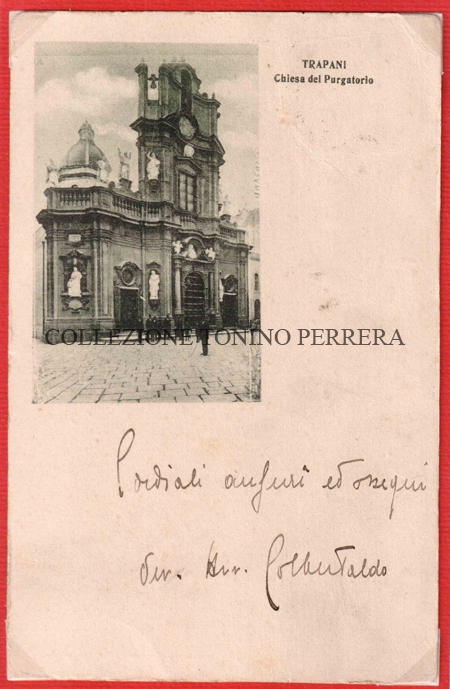 TRAPANI
Chiesa del Purgatorio
COLLEZIONE TONINO PERRERA
Cordiali auguri ed ossequi
Colbertaldo